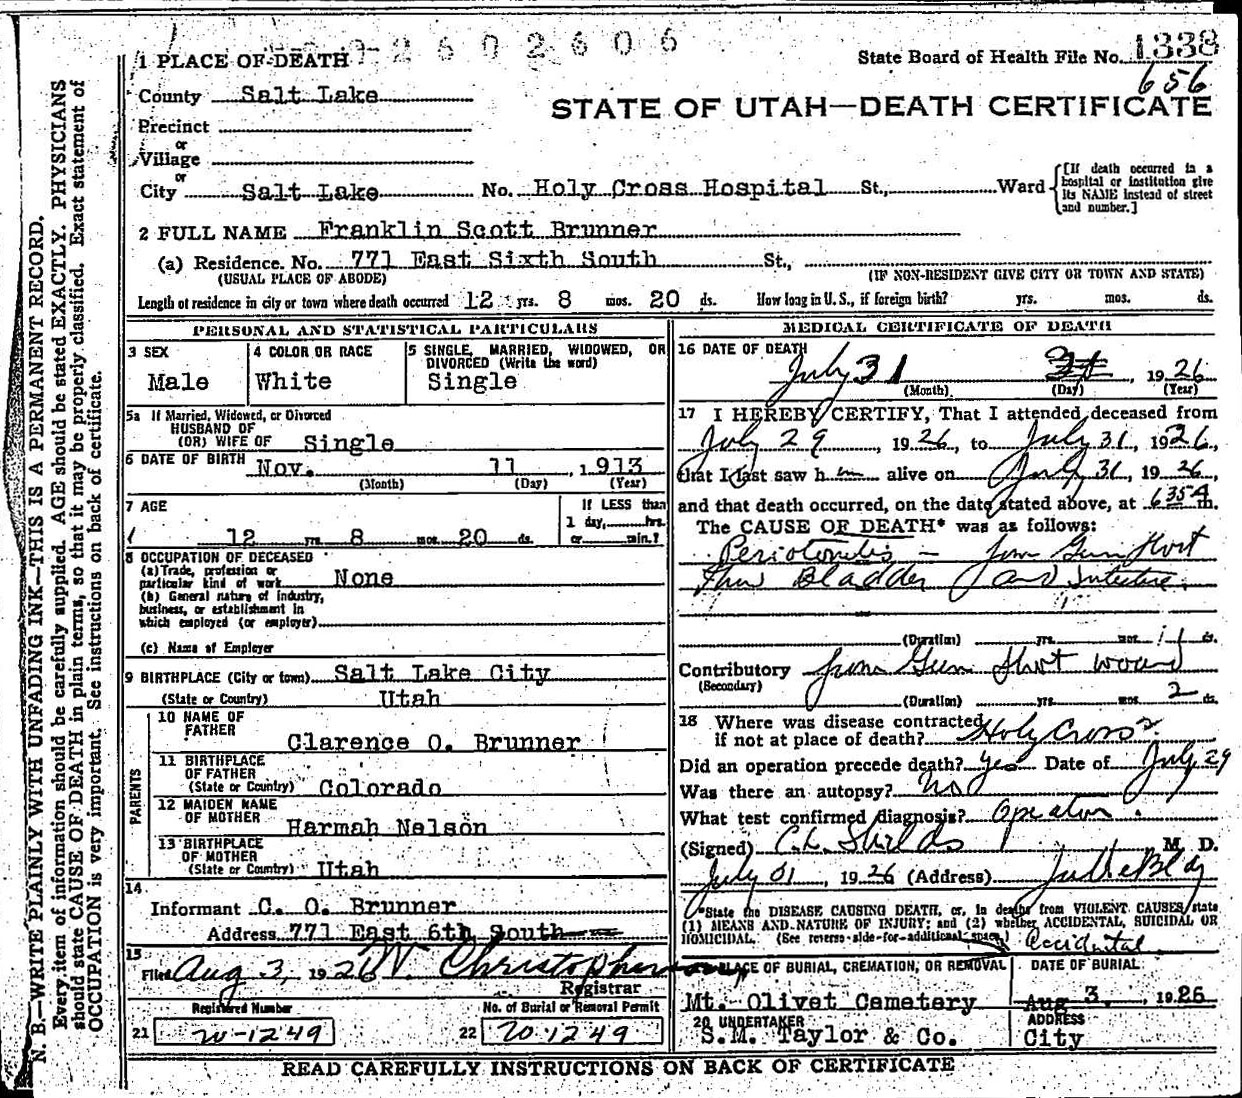 2602606
State Board of Health File No. 1338
656
1 PLACE OF DEATH
County Salt Lake
STATE OF UTAH—DEATH CERTIFICATE
Precinct
or
Village
or
City Salt Lake No. Holy Cross Hospital St., Ward
[If death occurred in a hospital or institution give its NAME instead of street and number.]
2 FULL NAME Franklin Scott Brunner
(a) Residence. No. 771 East Sixth South St.,
(USUAL PLACE OF ABODE) (IF NON-RESIDENT GIVE CITY OR TOWN AND STATE)
Length of residence in city or town where death occurred 12 yrs. 8 mos. 20 ds. How long in U.S., if foreign birth? yrs. mos. ds.
PERSONAL AND STATISTICAL PARTICULARS
3 SEX
Male
4 COLOR OR RACE
White
5 SINGLE, MARRIED, WIDOWED, OR
DIVORCED (Write the word)
Single
5a If Married, Widowed, or Divorced
HUSBAND OF
(OR) WIFE OF Single
6 DATE OF BIRTH Nov. 11, 1913
(Month) (Day) (Year)
7 AGE
12 yrs. 8 mos. 20 ds.
If LESS than
1 day, hrs.
or min.?
8 OCCUPATION OF DECEASED
(a) Trade, profession or
particular kind of work None
(b) General nature of industry,
business, or establishment in
which employed (or employer)
(c) Name of Employer
9 BIRTHPLACE (City or town) Salt Lake City
(State or Country) Utah
PARENTS
10 NAME OF
FATHER
Clarence O. Brunner
11 BIRTHPLACE
OF FATHER
(State or Country) Colorado
12 MAIDEN NAME
OF MOTHER
Harmah Nelson
13 BIRTHPLACE
OF MOTHER
(State or Country) Utah
14
Informant C. O. Brunner
Address 771 East 6th South
15
Filed Aug 3, 1926 W. Christopherson
Registrar
Registered Number
21 W-1249
No. of Burial or Removal Permit
22 W-1249
MEDICAL CERTIFICATE OF DEATH
16 DATE OF DEATH
July 31 31, 1926
(Month) (Day) (Year)
17 I HEREBY CERTIFY, That I attended deceased from
July 29, 1926, to July 31, 1926,
that I last saw h im alive on July 31, 1926
and that death occurred, on the date stated above, at 6 35 A m.
The CAUSE OF DEATH* was as follows:
Periotonitis - from Gun Shot
Thru Bladder and Intestine.
(Duration) yrs. mos. 1 ds.
Contributory from Gun Shot wound
(Secondary)
(Duration) yrs. mos. 2 ds.
18 Where was disease contracted
if not at place of death? Holy Cross?
Did an operation precede death? yes Date of July 29
Was there an autopsy? No
What test confirmed diagnosis? Operation.
(Signed) C.L. Shields M. D.
July 31, 1926 (Address) Bldg
*State the DISEASE CAUSING DEATH, or, in deaths from VIOLENT CAUSES, state
(1) MEANS AND NATURE OF INJURY; and (2) whether ACCIDENTAL, SUICIDAL OR
HOMICIDAL. (See reverse side for additional space) Accidental
PLACE OF BURIAL, CREMATION, OR REMOVAL
Mt. Olivet Cemetery
DATE OF BURIAL
Aug 3, 1926
20 UNDERTAKER
S.M. Taylor & Co.
ADDRESS
City
READ CAREFULLY INSTRUCTIONS ON BACK OF CERTIFICATE
N. B.—WRITE PLAINLY WITH UNFADING INK—THIS IS A PERMANENT RECORD.
Every item of information should be carefully supplied. AGE should be stated EXACTLY. PHYSICIANS
should state CAUSE OF DEATH in plain terms, so that it may be properly classified. Exact statement of
OCCUPATION is very important. See instructions on back of certificate.